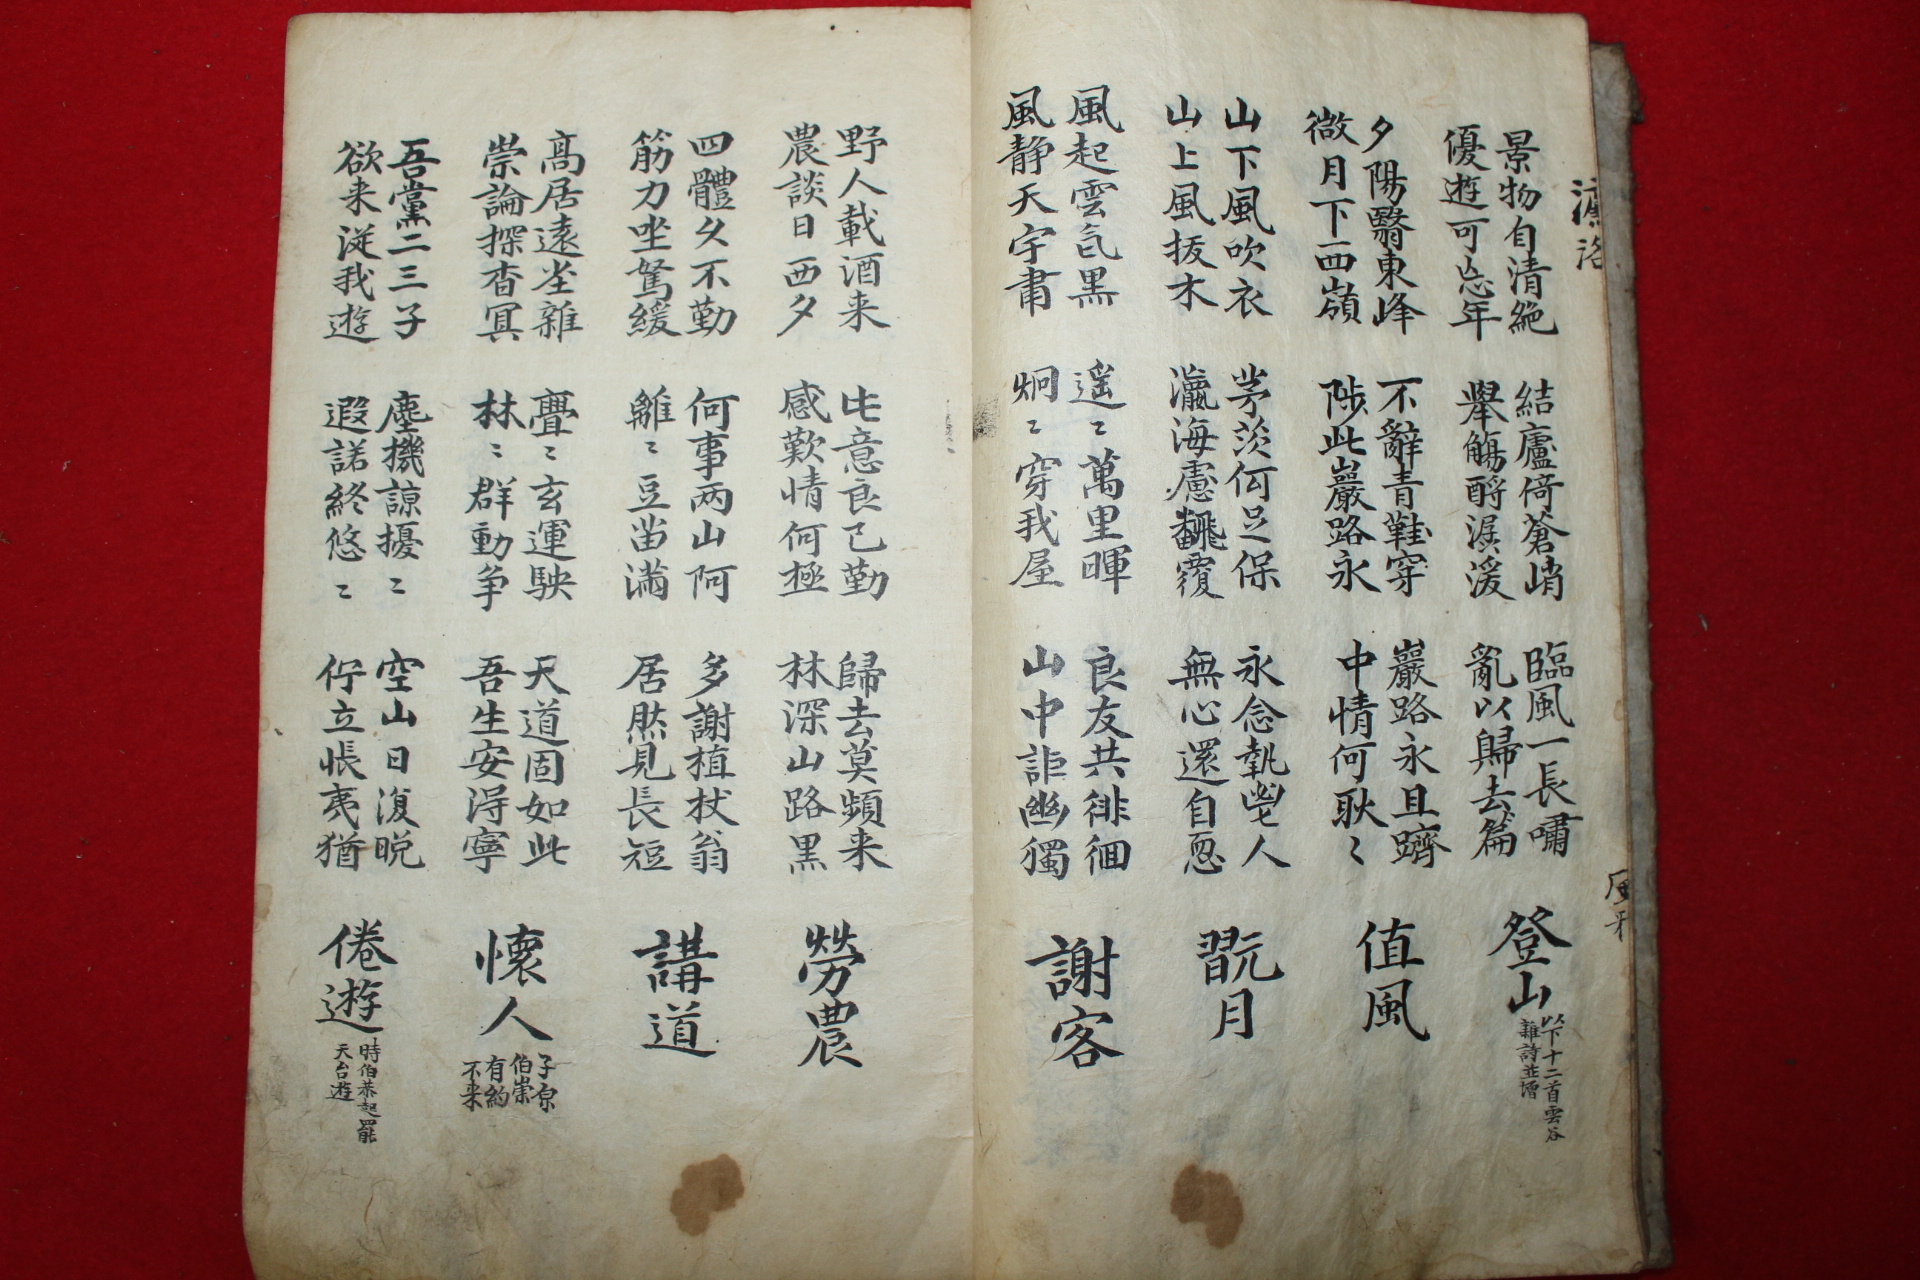 濂洛
風雅
景物自清絶
優遊可忘年
結廬倚蒼峭
舉觴酹潺湲
臨風一長嘯
亂以歸去篇
登山
以下十二首雲谷
雜詩並增
夕陽翳東峰
微月下西嶺
不辭青鞋穿
陟此巖路永
巖路永且躋
中情何耿〻
值風
山下風吹衣
山上風拔木
茅茨何足保
瀛海慮飜覆
永念人
無心還自恧
翫月
風起雲氣黒
風静天宇肅
遥〻萬里暉
烱〻穿我屋
良友共徘徊
山中詎幽獨
謝客
野人載酒来
農談日西夕
此意良已勤
感歎情何極
歸去莫頻来
林深山路黒
勞農
四體久不勤
筋力坐駑緩
何事兩山阿
離〻豆苗滿
多謝植杖翁
居然見長短
講道
高居遠塵雜
崇論探杳冥
亹〻玄運駚
林〻群動争
天道固如此
吾生安得寧
懷人
子原
伯崇
有約
不来
吾黨二三子
欲来從我遊
塵機諒擾〻
遐諾終悠〻
空山日復晚
佇立悵夷猶
倦遊
時伯恭起罷
天台遊